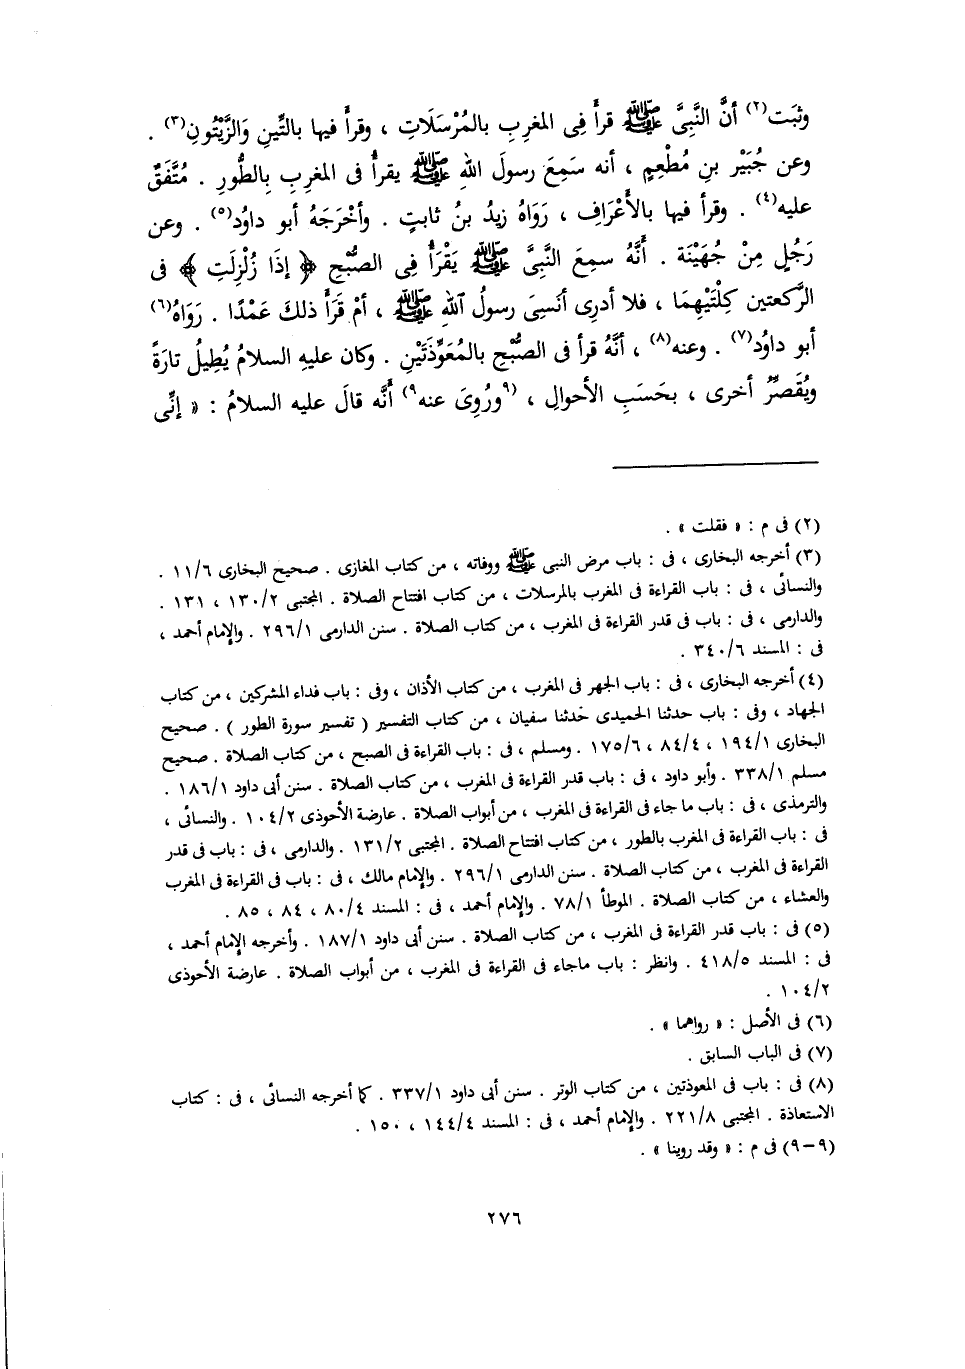 وثبَت(٢) أنَّ النَّبِىَّ ﷺ قرأَ فِى المغرِبِ بالمُرْسَلَاتِ ، وقرأَ فيها بالتِّينِ وَالزَّيْتُونِ(٣) .
وعن جُبَيْر بنِ مُطْعِمٍ ، أنه سَمِعَ رسولَ اللهِ ﷺ يقرأُ فى المغرِبِ بِالطُّورِ . مُتَّفَقٌ
عليه(٤) . وقرأ فيها بالأَعْرَافِ ، رَوَاهُ زيدُ بنُ ثابتٍ . وأخْرَجَهُ أبو داوُد(٥) . وعن
رَجُلٍ مِنْ جُهَيْنَة . أنَّهُ سمِعَ النَّبِىَّ ﷺ يَقْرَأُ فِى الصبُّحِ ﴿ إذَا زُلْزِلَتِ ﴾ فى
الرَّكعتين كِلْتَيْهِمَا ، فلا أدرِى أنَسِىَ رسولُ اللهِ ﷺ ، أمْ قَرَأَ ذلك عَمْدًا . رَوَاهُ(٦)
أبو داوُد(٧) . وعنه(٨) ، أنَّهُ قرأ فى الصبُّحِ بالمُعَوِّذَتَيْنِ . وكان عليهِ السلامُ يُطِيلُ تارَةً
ويُقَصِّرُ أخرى ، بحَسَبِ الأحوالِ ، (٩ورُوِىَ عنه٩) أنَّه قالَ عليه السلامُ : « إنِّى
(٢) فى م : « فقلت » .
(٣) أخرجه البخارى ، فى : باب مرض النبى ﷺ ووفاته ، من كتاب المغازى . صحيح البخارى ١١/٦ .
والنسائى ، فى : باب القراءة فى المغرب بالمرسلات ، من كتاب افتتاح الصلاة . المجتبى ١٣٠/٢ ، ١٣١ .
والدارمى ، فى : باب فى قدر القراءة فى المغرب ، من كتاب الصلاة . سنن الدارمى ٢٩٦/١ . والإمام أحمد ،
فى : المسند ٣٤٠/٦ .
(٤) أخرجه البخارى ، فى : باب الجهر فى المغرب ، من كتاب الأذان ، وفى : باب فداء المشركين ، من كتاب
الجهاد ، وفى : باب حدثنا الحميدى حدثنا سفيان ، من كتاب التفسير ( تفسير سورة الطور ) . صحيح
البخارى ١٩٤/١ ، ٨٤/٤ ، ١٧٥/٦ . ومسلم ، فى : باب القراءة فى الصبح ، من كتاب الصلاة . صحيح
مسلم ٣٣٨/١ . وأبو داود ، فى : باب قدر القراءة فى المغرب ، من كتاب الصلاة . سنن أبى داود ١٨٦/١ .
والترمذى ، فى : باب ما جاء فى القراءة فى المغرب ، من أبواب الصلاة . عارضة الأحوذى ١٠٤/٢ . والنسائى ،
فى : باب القراءة فى المغرب بالطور ، من كتاب افتتاح الصلاة . المجتبى ١٣١/٢ . والدارمى ، فى : باب فى قدر
القراءة فى المغرب ، من كتاب الصلاة . سنن الدارمى ٢٩٦/١ . والإمام مالك ، فى : باب فى القراءة فى المغرب
والعشاء ، من كتاب الصلاة . الموطأ ٧٨/١ . والإمام أحمد ، فى : المسند ٨٠/٤ ، ٨٤ ، ٨٥ .
(٥) فى : باب قدر القراءة فى المغرب ، من كتاب الصلاة . سنن أبى داود ١٨٧/١ . وأخرجه الإمام أحمد ،
فى : المسند ٤١٨/٥ . وانظر : باب ماجاء فى القراءة فى المغرب ، من أبواب الصلاة . عارضة الأحوذى
١٠٤/٢ .
(٦) فى الأصل : « رواهما » .
(٧) فى الباب السابق .
(٨) فى : باب فى المعوذتين ، من كتاب الوتر . سنن أبى داود ٣٣٧/١ . كما أخرجه النسائى ، فى : كتاب
الاستعاذة . المجتبى ٢٢١/٨ . والإمام أحمد ، فى : المسند ١٤٤/٤ ، ١٥٠ .
(٩-٩) فى م : « وقد روينا » .
٢٧٦